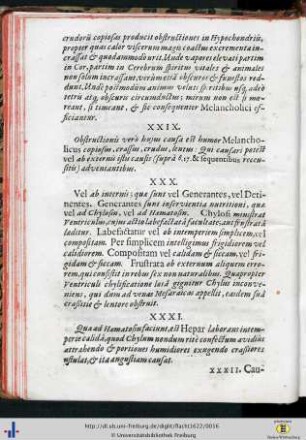 crudorú copiosas producit obstructiones in Hypochondriis,
propter quas calor viscerum magis coactus excrementa in-
crassat & quodammodo urit. Unde vapores elevati partim
in Cor, partim in Cerebrum spiritus vitales & animales
non solum incrassant, verùm etiã obscuros & funestos red-
dunt. Unde postmodum animus velut spiritibus usq; adeò
tetris atq; obscuris circumductus; mirum non est si mæ-
reat, si timeant, & sic consequenter Melancholici ef-
ficiantur.
XXIX.
Obstructionis verò hujus causa est humor Melancho-
licus copiosus, crassus, crudus, lentus: Qui causari potest
vel ab externis istis causis (suprà §. 17. & sequentibus recen-
sitis) advenientibus.
XXX.
Vel ab internis: quæ sunt vel Generantes, vel Deti-
nentes. Generantes sunt inservientia nutritioni, qua
vel ad Chylosin, vel ad Hæmatosin. Chylosi ministrat
Ventriculus, cujus actio labefactatâ facultate, aut frustratâ
læditur. Labefactatur vel ab intemperiem simplicem, vel
compositam. Per simplicem intelligimus frigidiorem vel
calidiorem. Compositam vel calidam & siccam, vel fri-
gidam & siccam. Frustrata ob externum aliquem erro-
rem, qui consistit in rebus sex non naturalibus. Quapropter
Ventriculi chylificatione læsâ gignitur Chylus inconve-
niens, qui dum ad venas Mesaraicas appellit, easdem suâ
crassitie & lentore obstruit.
XXXI.
Qua ad Hæmatosin faciunt, est Hepar laborans intem-
perie calidâ, quod Chylum nondum ritè confectum avidiùs
attrahendo & portiones humidiores exugendo crassiores
ustulat, & ita angustiam causat.
XXXII. Cau-
http://dl.ub.uni-freiburg.de/diglit/flacht1622/0016
© Universitätsbibliothek Freiburg